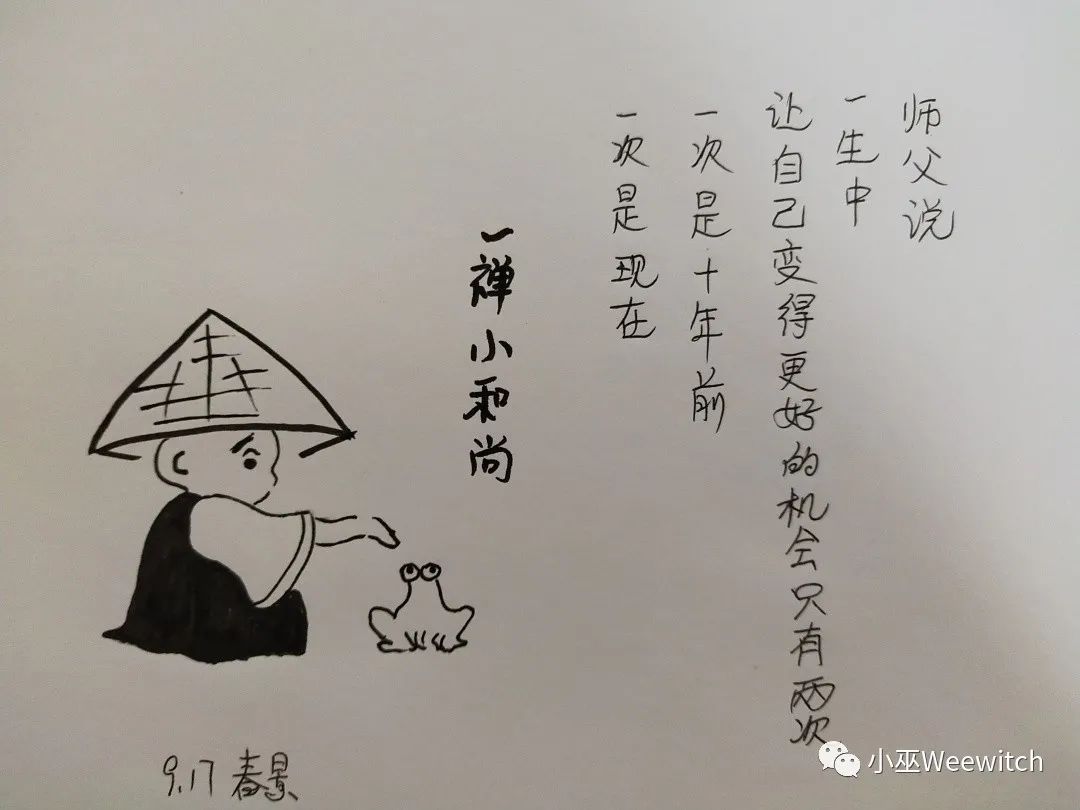 师父说
一生中
让自己变得更好的机会只有两次
一次是十年前
一次是现在
一禅小和尚
9.17 春景
小巫Weewitch